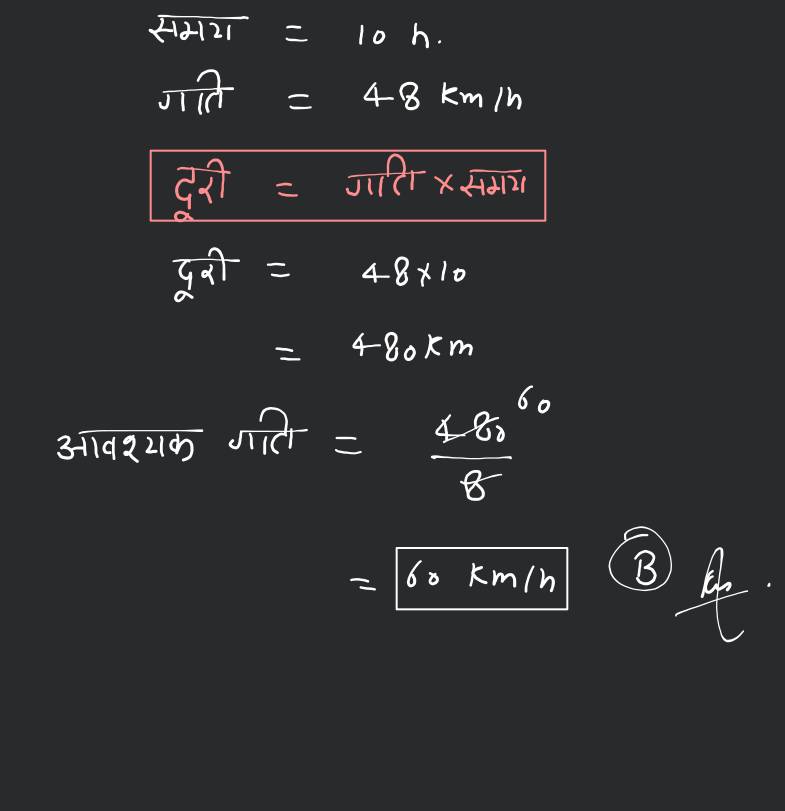 समय = 10 h.
गति = 48 km/h
दूरी = गति × समय
दूरी = 48×10
= 480 km
आवश्यक गति = 480/8 60
= 60 km/h B Ans.